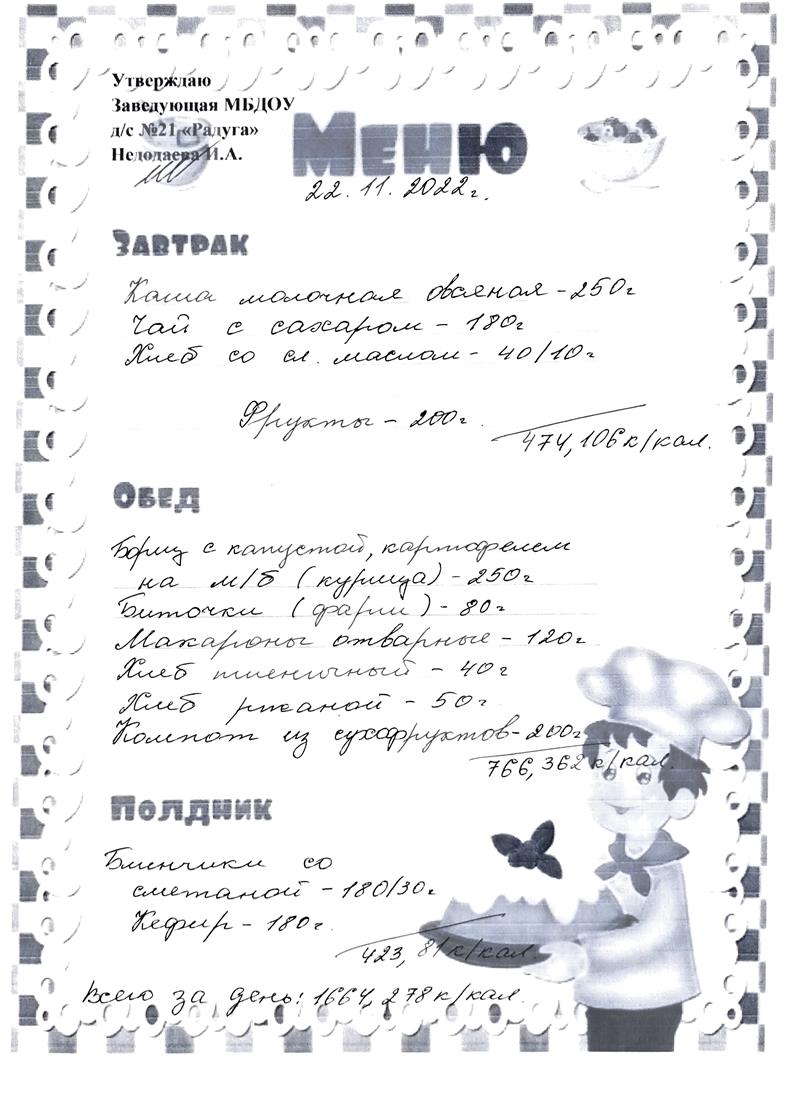 Утверждаю
Заведующая МБДОУ
д/с №21 «Радуга»
Недодаева И.А.
Меню
22.11.2022г.
Завтрак
Каша молочная овсяная – 250г
Чай с сахаром – 180г
Хлеб со сл. маслом – 40/10г
Фрукты – 200г.
474,106 к/кал.
Обед
Борщ с капустой, картофелем
на м/б (курица) – 250г
Биточки (фарш) – 80г
Макароны отварные – 120г
Хлеб пшеничный – 40г
Хлеб ржаной – 50г
Компот из сухофруктов – 200г
766,362 к/кал.
Полдник
Блинчики со
сметаной – 180/30г
Кефир – 180г.
423,81 к/кал.
Всего за день: 1664,278 к/кал.